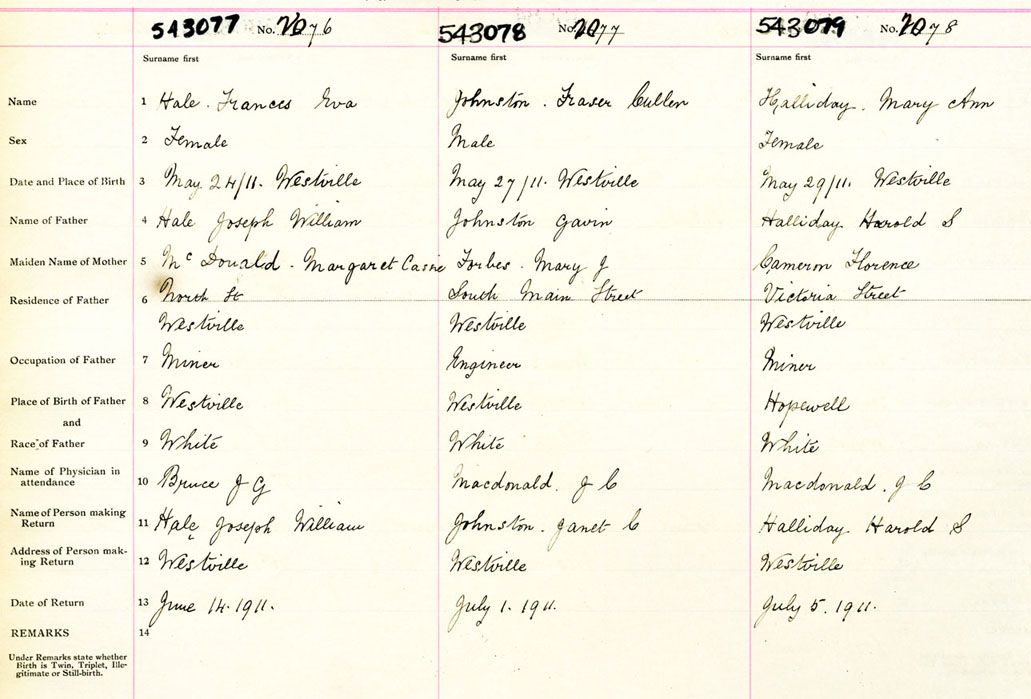 543077 No. 2076 543078 No. 2077 543079 No. 2078
Surname first Surname first Surname first
Name 1 Hale. Frances Eva Johnston. Fraser Cullen Halliday. Mary Ann
Sex 2 Female Male Female
Date and Place of Birth 3 May 24/11. Westville May 27/11. Westville May 29/11. Westville
Name of Father 4 Hale Joseph William Johnston Gavin Halliday. Harold S
Maiden Name of Mother 5 Mc Donald. Margaret Forbes. Mary J Cameron Florence
Residence of Father 6 North St South Main Street Victoria Street
Westville Westville Westville
Occupation of Father 7 Miner Engineer Miner
Place of Birth of Father 8 Westville Westville Hopewell
and
Race of Father 9 White White White
Name of Physician in
attendance 10 Bruce J G Macdonald. J C Macdonald. J C
Name of Person making
Return 11 Hale Joseph William Johnston. Janet C Halliday. Harold S
Address of Person mak-
ing Return 12 Westville Westville Westville
Date of Return 13 June 14. 1911. July 1. 1911. July 5. 1911.
REMARKS 14
Under Remarks state whether
Birth is Twin, Triplet, Ille-
gitimate or Still-birth.